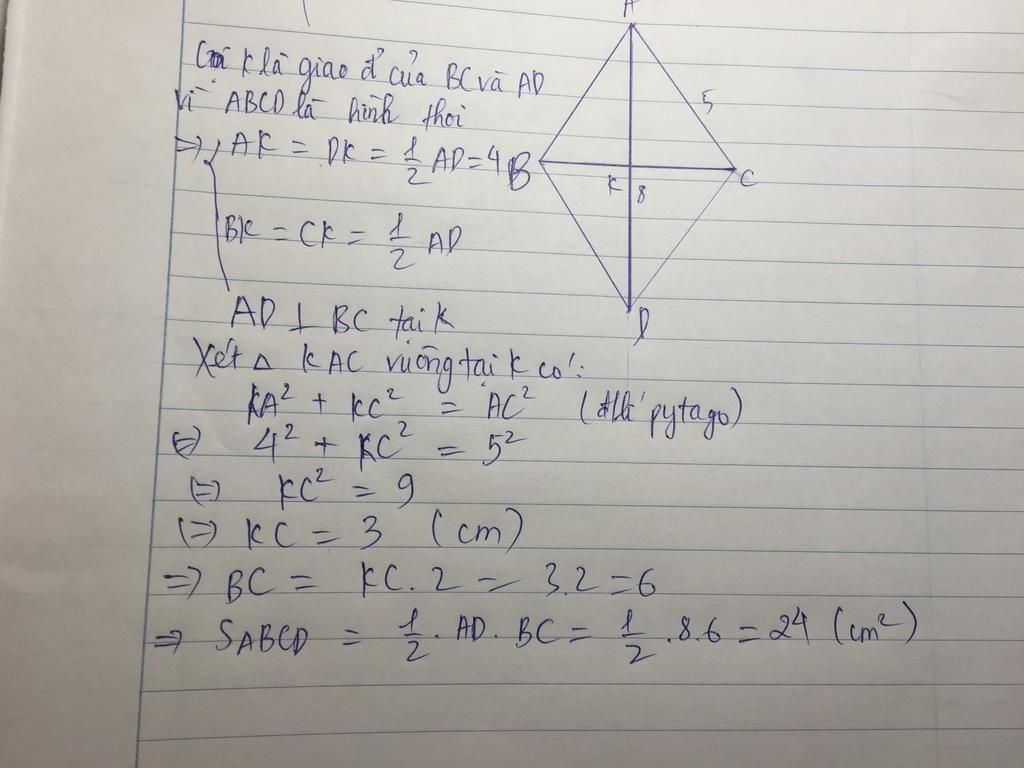 Gọi K là giao đ' của BC và AD
Vì ABCD là hình thoi
=> AK = DK = 1/2 AD = 4
BK = CK = 1/2 AD
AD ⊥ BC tại K
Xét Δ KAC vuông tại K có:
KA² + KC² = AC² (đlí pytago)
<=> 4² + KC² = 5²
<=> KC² = 9
<=> KC = 3 (cm)
=> BC = KC . 2 = 3.2 = 6
=> SABCD = 1/2 . AD . BC = 1/2 .8.6 = 24 (cm²)
A
5
B
K
8
C
D